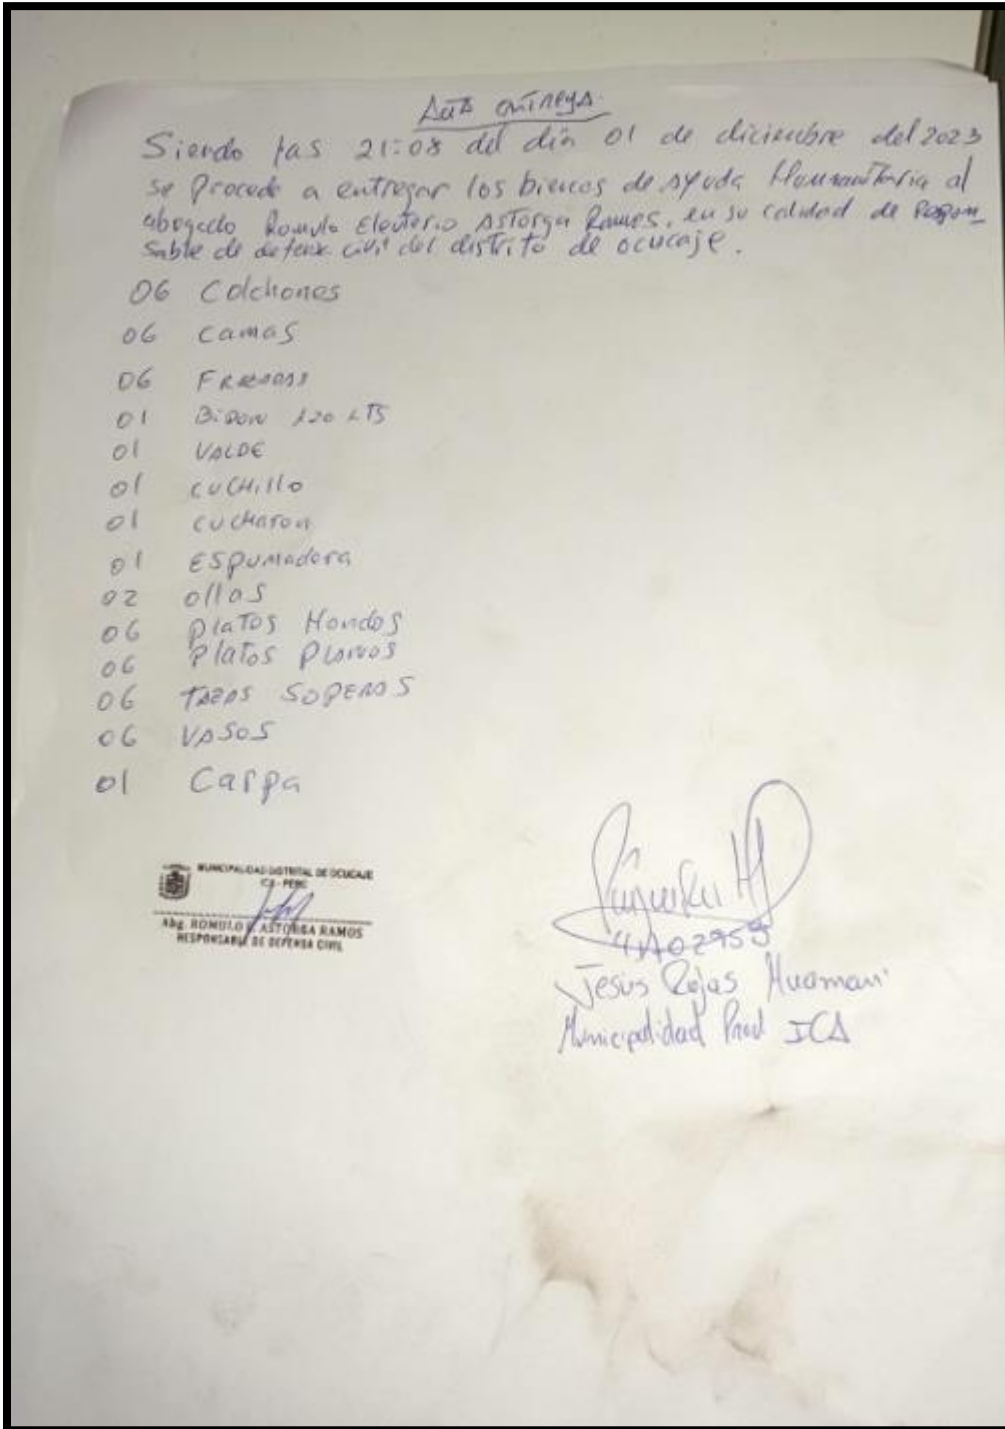 Acta entrega.
Siendo las 21:08 del día 01 de diciembre del 2023
se procede a entregar los bienes de Ayuda Humanitaria al
abogado Romulo Eleuterio Astorga Ramos, en su calidad de Respon
sable de defensa civil del distrito de ocucaje.
06 Colchones
06 camas
06 FRAZADAS
01 BiDON 120 LTS
01 VALDE
01 CUCHillo
01 CUCHaron
01 ESPUMadera
02 ollas
06 PlaTos Hondos
06 Platos PLANOS
06 TAZAS SOPERAS
06 VASOS
01 Carpa
MUNICIPALIDAD DISTRITAL DE OCUCAJE
ICA - PERU
Abg. ROMULO E. ASTORGA RAMOS
RESPONSABLE DE DEFENSA CIVIL
Jesus Rojas Huamani
Municipalidad Prov ICA